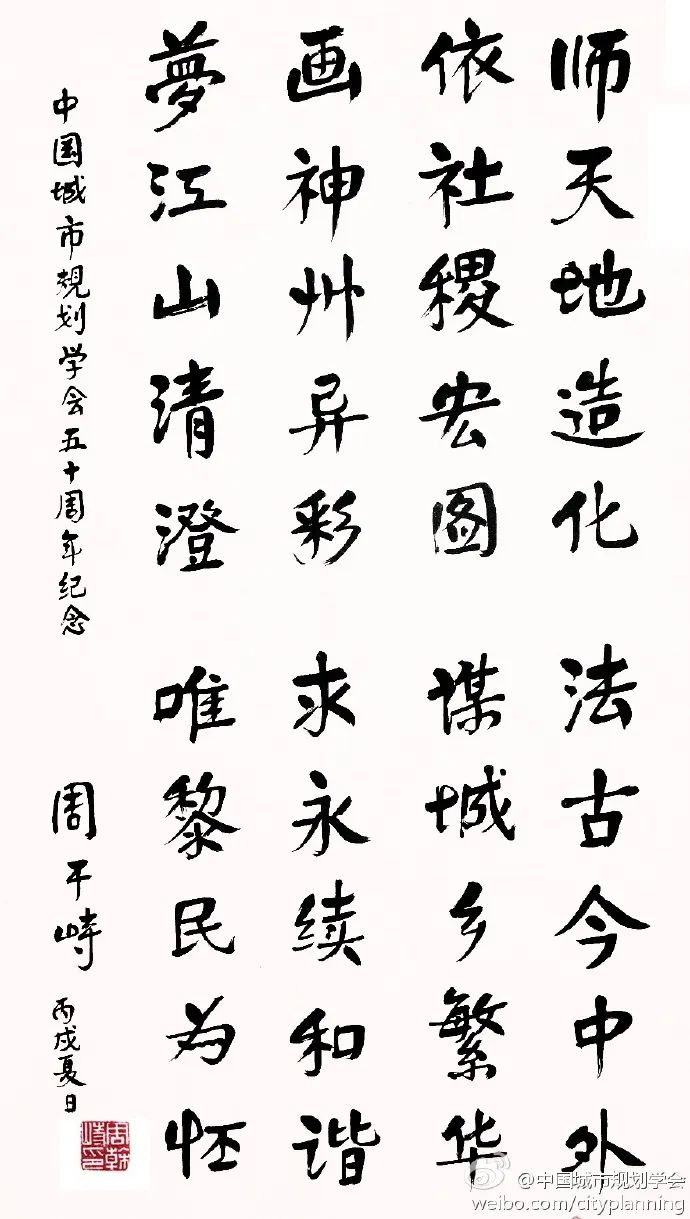 师天地造化 法古今中外
依社稷宏图 谋城乡繁华
画神州异彩 求永续和谐
夢江山清澄 唯黎民为怀
中国城市規划学会五十周年纪念
周干峙 丙戌夏日
周幹峙印
@中国城市规划学会
weibo.com/cityplanning